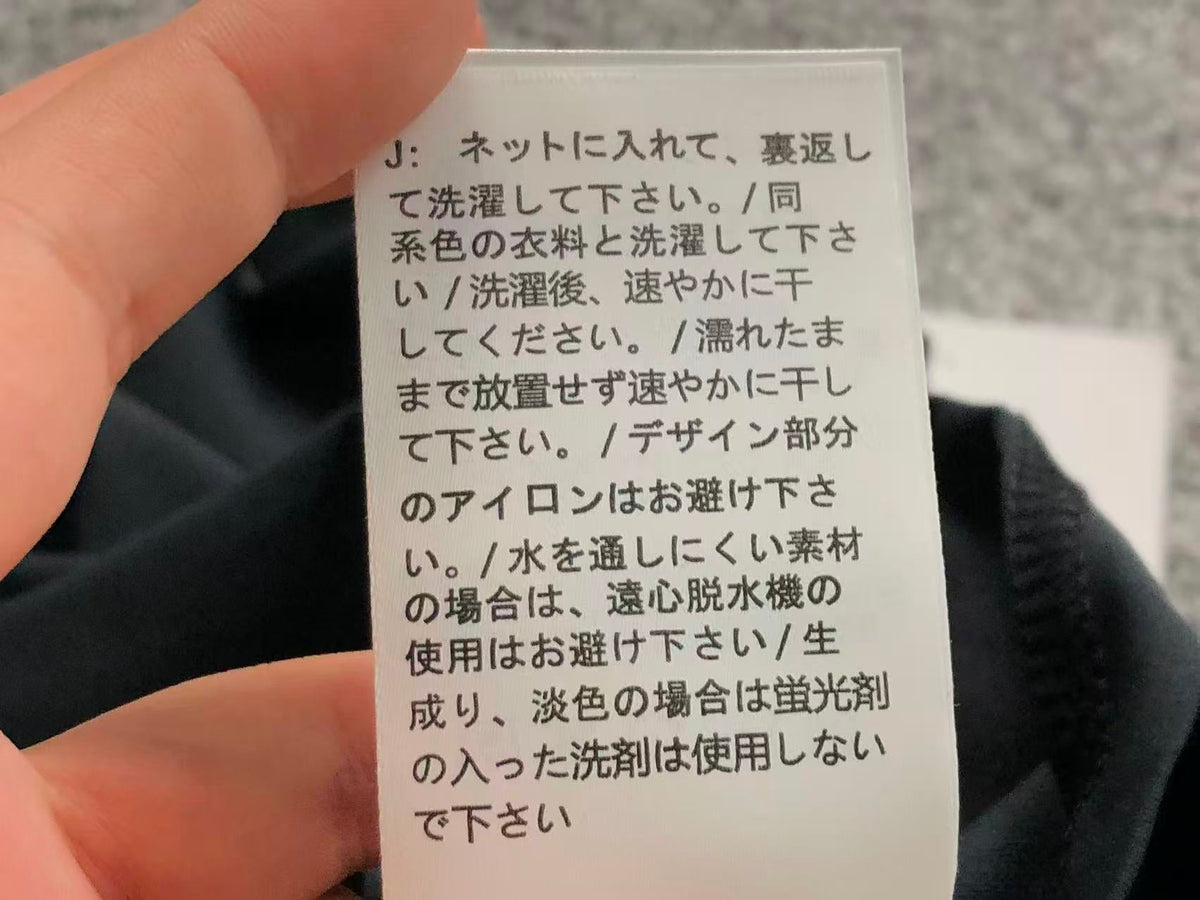 J: ネットに入れて、裏返し
て洗濯して下さい。/同
系色の衣料と洗濯して下さ
い /洗濯後、速やかに干
してください。/濡れたま
まで放置せず速やかに干し
て下さい。/デザイン部分
のアイロンはお避け下さ
い。/水を通しにくい素材
の場合は、遠心脱水機の
使用はお避け下さい/生
成り、淡色の場合は蛍光剤
の入った洗剤は使用しない
で下さい